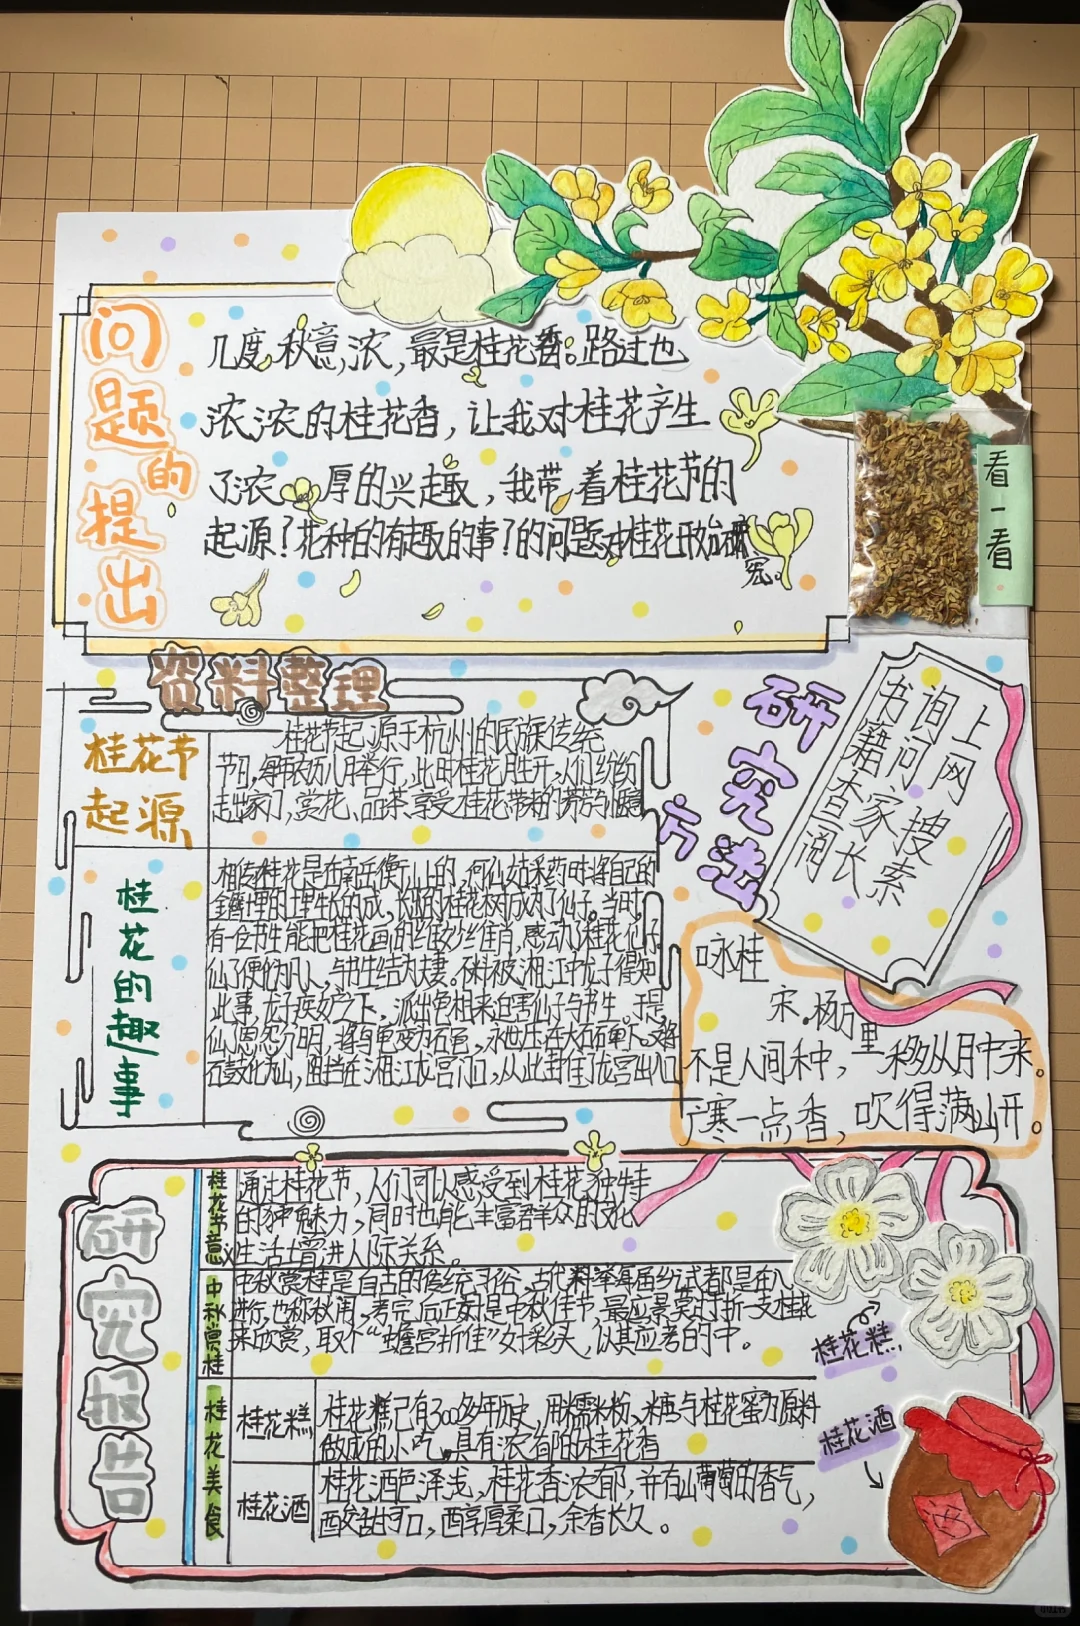 问题的提出
几度秋意浓,最是桂花香。路过也
浓浓的桂花香,让我对桂花产生
了浓厚的兴趣,我带着桂花节的
起源?花种的有趣的事?的问题对桂花开始研
究。
看一看
资料整理
桂花节
起源
桂花节起源于杭州的民族传统
节日,每年农历八月举行,此时桂花盛开,人们纷纷
走出家门,赏花、品茶、享受桂花带来的芳芳
桂花的趣事
相传桂花是在南岳衡山上的,何仙姑采药时将自己的
当时,
有一位书生能把桂花画的维妙维肖,感动了桂花仙子。
仙子便化为凡人,与书生结为夫妻。不料被湘江中龙子得知
此事,龙子疾妒之下,派出龟相来迫害仙子与书生。于是,
仙恩怨分明,将乌龟变为石龟,永世压在大石
石鼓化为山,阻挡在湘江龙宫门口,从此封住了龙宫出入口
研究方法
上网搜索
询问家长
书籍查阅
咏桂
宋.杨万里
不是人间种,移从月中来。
广寒一点香,吹得满山开。
研究报告
桂花节意义
通过桂花节,人们可以感受到桂花独特
的独魅力,同时也能丰富群众的文化
生活增进人际关系。
中秋赏桂
中秋赏桂是自古的传统习俗,古代科举每届乡试都是在八
进行,也称秋闱,考完后正好是中秋佳节,最应景莫过折一支桂花
来欣赏,取个“蟾宫折佳”好彩头,以其应考的中。
桂花美食
桂花糕
桂花糕已有300多年历史,用糯米粉、糖与桂花蜜为原料
做成的小吃,具有浓郁的桂花香
桂花酒
桂花酒色泽浅,桂花香浓郁,并有山葡萄的香气,
酸甜可口,醇厚柔口,余香长久。
桂花糕
桂花酒
酒